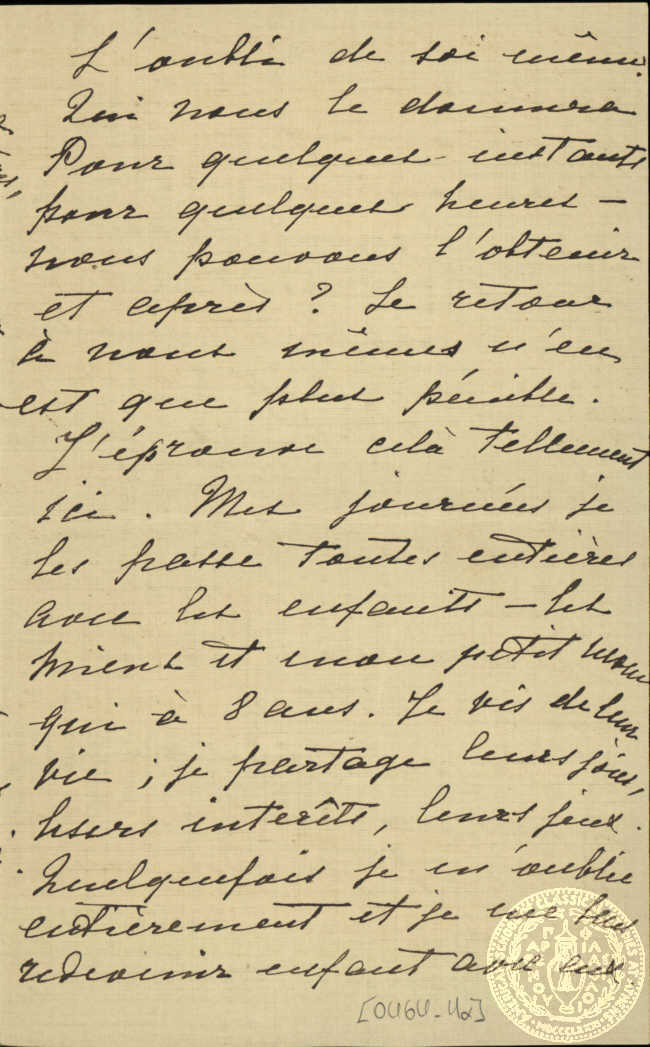 L'oubli de soi même.
Qui nous le donnera
Pour quelques instants
pour quelques heures –
nous pouvons l'obtenir
et après ? Le retour
à nous mêmes n'en
est que plus pénible.
J'éprouve celà tellement
ici. Mes journées je
les passe toutes entières
avec les enfants – les
miens et mon petit neveu
qui à 8 ans. Je vis de leur
vie ; je partage leurs joies,
leurs interêts, leurs jeux.
Quelquefois je m'oublie
entièrement et je me sens
redevenir enfant avec eux.
[0464-42]
AMERICAN SCHOOL OF CLASSICAL STUDIES AT ATHENS
MDCCCLXXXI